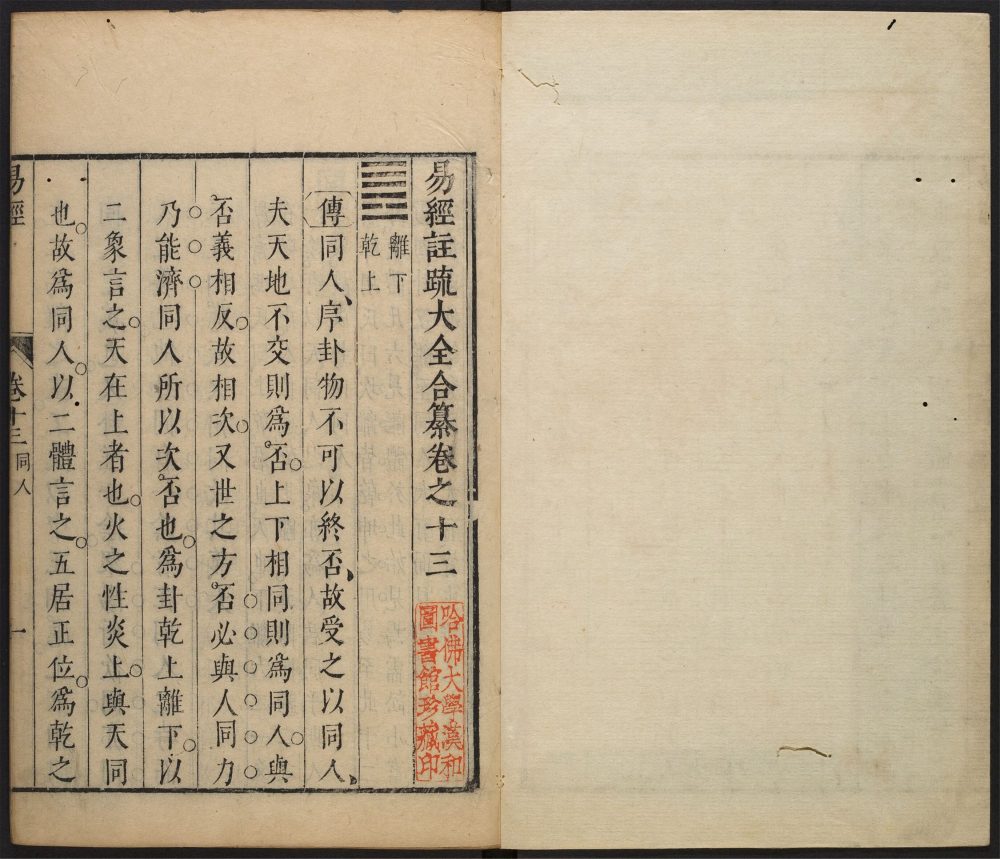 易經註疏大全合纂卷之十三
離下
乾上
傳同人序卦物不可以終否故受之以同人
夫天地不交則爲否上下相同則爲同人與
否義相反故相次又世之方否必與人同力
乃能濟同人所以次否也爲卦乾上離下以
二象言之天在上者也火之性炎上與天同
也故爲同人以二體言之五居正位爲乾之
易經
卷十三
同人
一
哈佛大學漢和
圖書館珍藏印